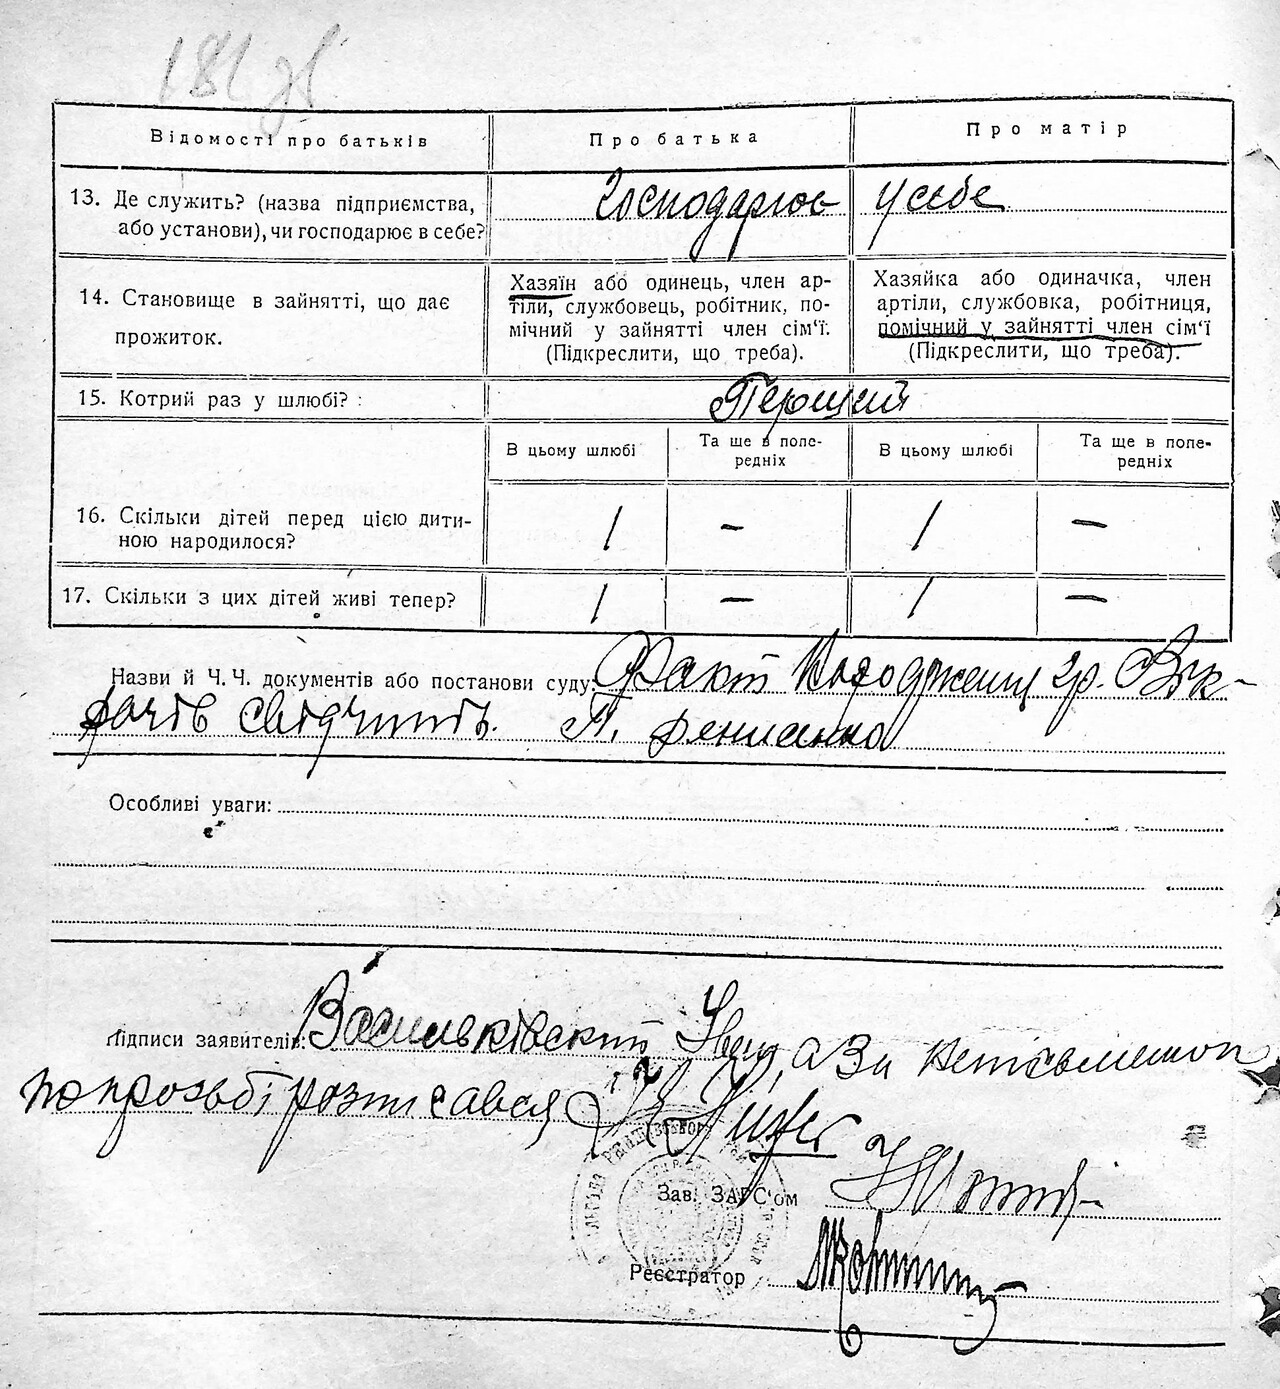 181 зв
Відомості про батьків
Про батька
Про матір
13. Де служить? (назва підприємства,
або установи), чи господарює в себе?
Господарює у себе
14. Становище в зайнятті, що дає
прожиток.
Хазяїн або одинець, член ар-
тілі, службовець, робітник, по-
мічний у зайнятті член сім'ї.
(Підкреслити, що треба).
Хазяйка або одиначка, член
артілі, службовка, робітниця,
помічний у зайнятті член сім'ї
(Підкреслити, що треба).
15. Котрий раз у шлюбі? :
Перший
В цьому шлюбі
Та ще в попе-
редніх
В цьому шлюбі
Та ще в попе-
редніх
16. Скільки дітей перед цією дити-
ною народилося?
1 – 1 –
17. Скільки з цих дітей живі тепер?
1 – 1 –
Назви й Ч. Ч. документів або постанови суду: Факт народження гр.
свідчить. П. Денисенко
Особливі уваги:
Підписи заявителів: Васильківский Іван, а за неписьменого
по прозьбі розписався
Зав. ЗАГС'ом
Реєстратор